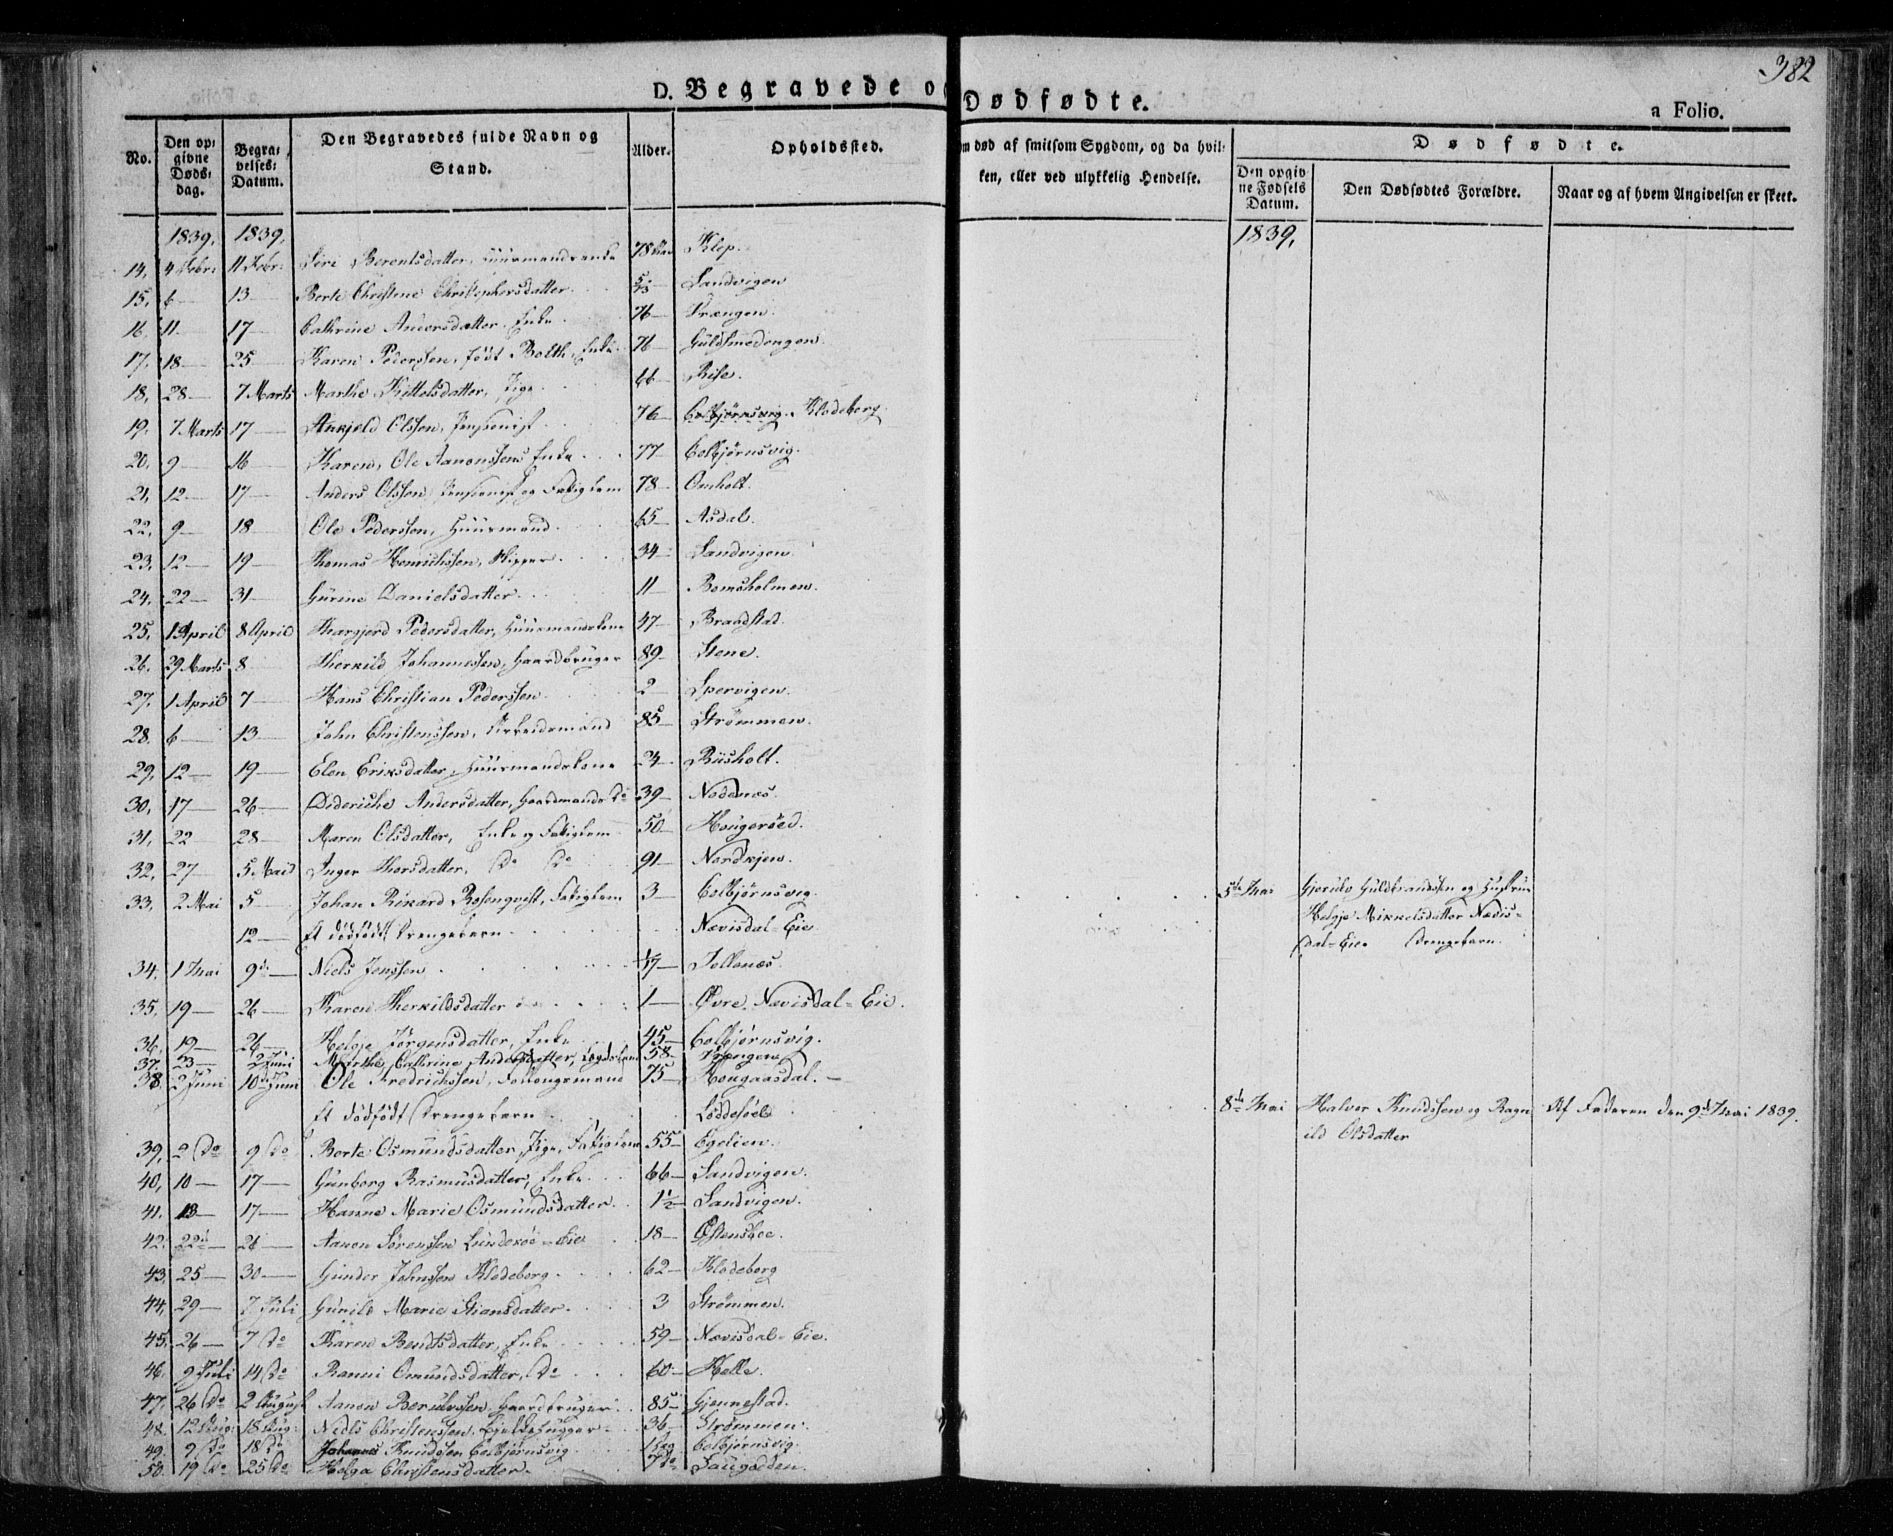 382
D. Begravede o
Dødfødte.
a Folio.
No.
Den op-
givne
Døds-
dag.
Begra-
velses-
Datum.
Den Begravedes fulde Navn og
Stand.
Alder.
Opholdssted.
m død af smitsom Sygdom, og da hvil-
ken, eller ved ulykkelig Hendelse.
Dødfødte.
Den opgiv
ne Fødsels
Datum.
Den Dødfødtes Forældre.
Naar og af hvem Angivelsen er skeet.
1839, 1839, 1839,
14, 4 Febr: 11 Febr: Siri Berentsdatter, Huusmandsenke 78 Klep.
15, 6 — 13 — Berte Christine Christophersdatter Sandvigen
16, 11 — 17 — Cathrine Andersdatter, Enke 76 — Vrængen.
17, 18 — 25 — Karen Pederssen, født Boeth, Enke 71 — Guldsmedengen.
18, 28 — 7 Marts Marthe Kittelsdatter, Pige 66 — Rise.
19. 7 Marts 17 — Ankjeld Olssen, Pensionist 76 — Colbjørnsvig. Klodeborg.
20, 9 — 16 — Karen, Ole Aanonssens Enke 77 — Colbjørnsvig.
21, 12 — 17 — Anders Olssen, Pensionist og Fattiglem 78 — Omholt.
22, 9 — 18 Ole Pederssen, Huusmand 65 — Asdal.
23, 12 — 19 — Thomas Henrichssen, Skipper 34 — Sandvigen.
24, 22 — 31 — Gurine Danielsdatter 11 Bomsholmen.
25, 1 April 8 April Thargjerd Pedersdatter, Huusmandskone 47 — Braadstad.
26, 29 Marts 8 — Therkild Johannessen, Gaardbruger 89 — Stene.
27, 1 April 7 — Hans Christian Pederssen 2 — Spervigen.
28. 6 — 13 — John Christenssen, Arbeidsmand 85 — Strømmen.
29, 12 — 19 — Elen Eriksdatter, Huusmandskone 24 — Biisholt.
30, 17 — 26 — Dideriche Andersdatter, Gaardmands Do 39 — Nedenæs.
31, 22 28 — Maren Olsdatter, Enke og Fattiglem 50 — Hougerøed.
32, 27 — 5 Maid Inger Thorsdatter, Do Do 91 — Nordkjen.
33, 2 Mai 5 — Johan Rikard Rosenqvist, Fattiglem 3 — Colbjørnsvig.
12 — Et dødfødt Drengebarn Nævisdal-Eie
5te Mai Gjerulv Guldbrandssen og Hustrue
Helgje Mikkelsdatter Nævis-
dal-Eie. Drengebarn.
34. 1 Mai 9 — Niels Jenssen 17 — Jellenæs.
35, 19 — 26 — Karen Therkildsdatter 1 — Øvre Nævisdal-Eie.
36. 19 — 26 — Helgje Jørgensdatter, Enke 45 — Colbjørnsvig.
37, 23 — 2 Juni Marthe Cathrine Andersdatter, 58 — Vrængen
38 2 Juni 10 Juni Ole Fredrichssen, 75 — Hougaasdal. —
Et dødfødt Drengebarn Løddesøeld
8de Mai Halvor Knudssen og Ragn
ild Olsdatter
Af Faderen den 9de Mai 1839.
39, 2 Do 9 Do Berte Osmundsdatter, Pige, Fattiglem 55 — Egelien.
40, 10 — 17 — Gunborg Rasmusdatter, Enke 66 — Sandvigen.
41. 13 — 17 — Hanne Marie Osmundsdatter 1½ — Sandvigen.
42. 22de — 26 — Aanon Sørenssen Lundekøe-Eie 18 — Østensbøe.
43. 25 — 30 — Gunder Johnssen Klodeborg 62 — Klodeborg
44, 29 — 7 Juli Gunild Marie Stiansdatter 3 Strømmen.
45. 26 — 7 Do Karen Bendtsdatter, Enke 59 — Nævisdal-Eie.
46. 9 Juli 14 Do Ranni Omundsdatter, Do 60 — Helle.
47. 26 Do 2 August Aanon Berulvssen, Gaardbruger 85 — Gjennestad.
48. 12 Aug: 18 Aug: Niels Christenssen, 36 — Strømmen.
49. 9 Do 18 Do Johannes Knudssen Colbjørnsvig Colbjørnsvig.
50. 19 Do 25 Do Helga Christensdatter 7 Do